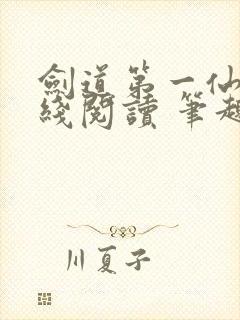 劍道第一仙
綫閱讀 筆趣
川夏子